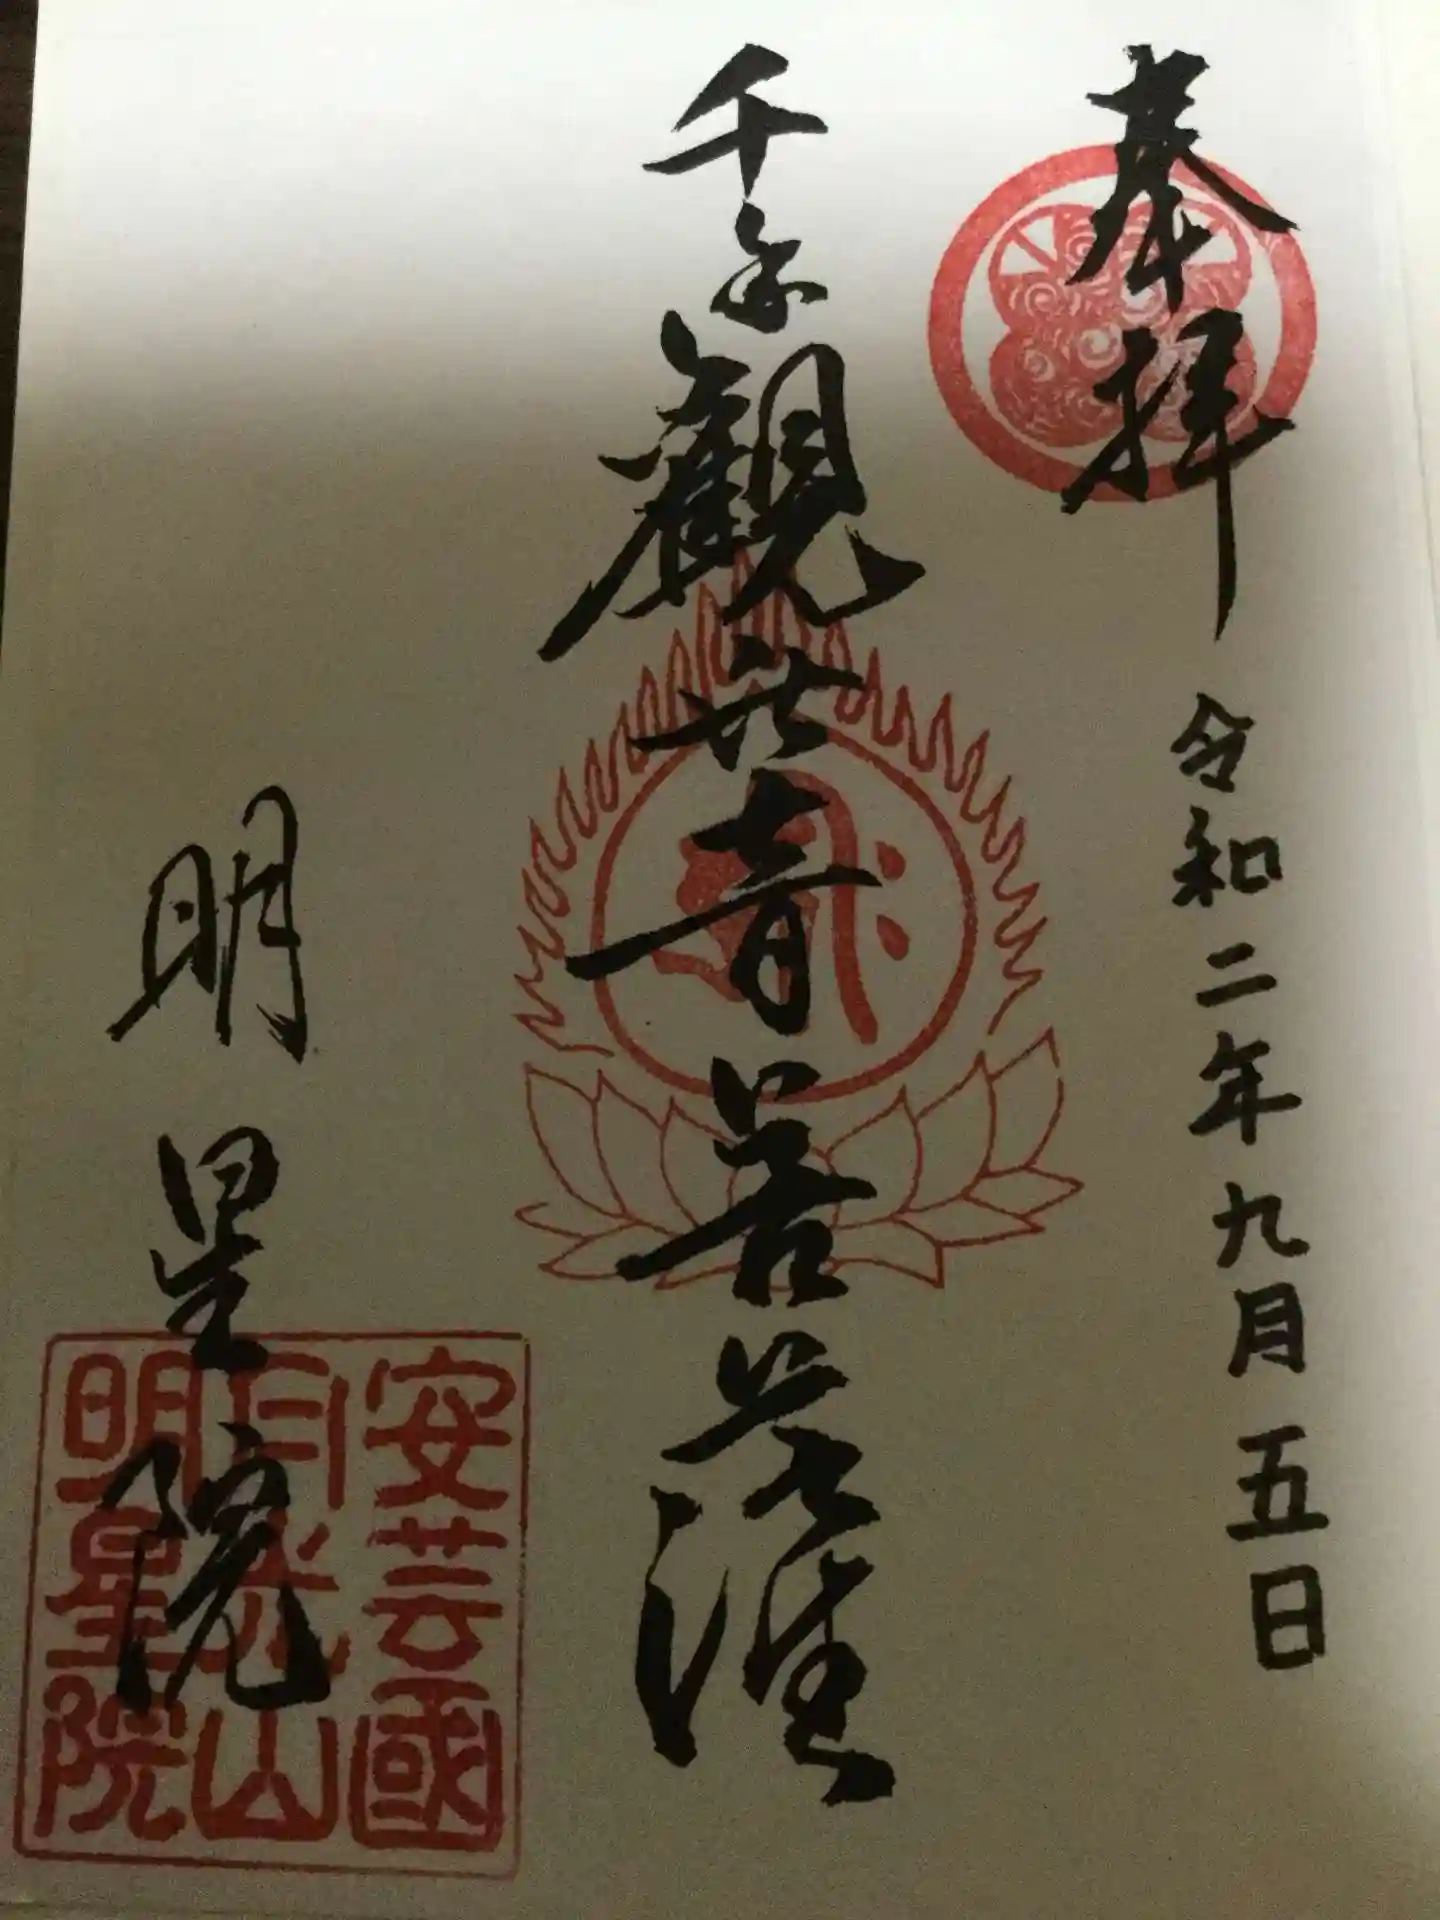 奉拝
令和二年九月五日
千手観世音菩薩
明星院
安芸國
月光山
明星院